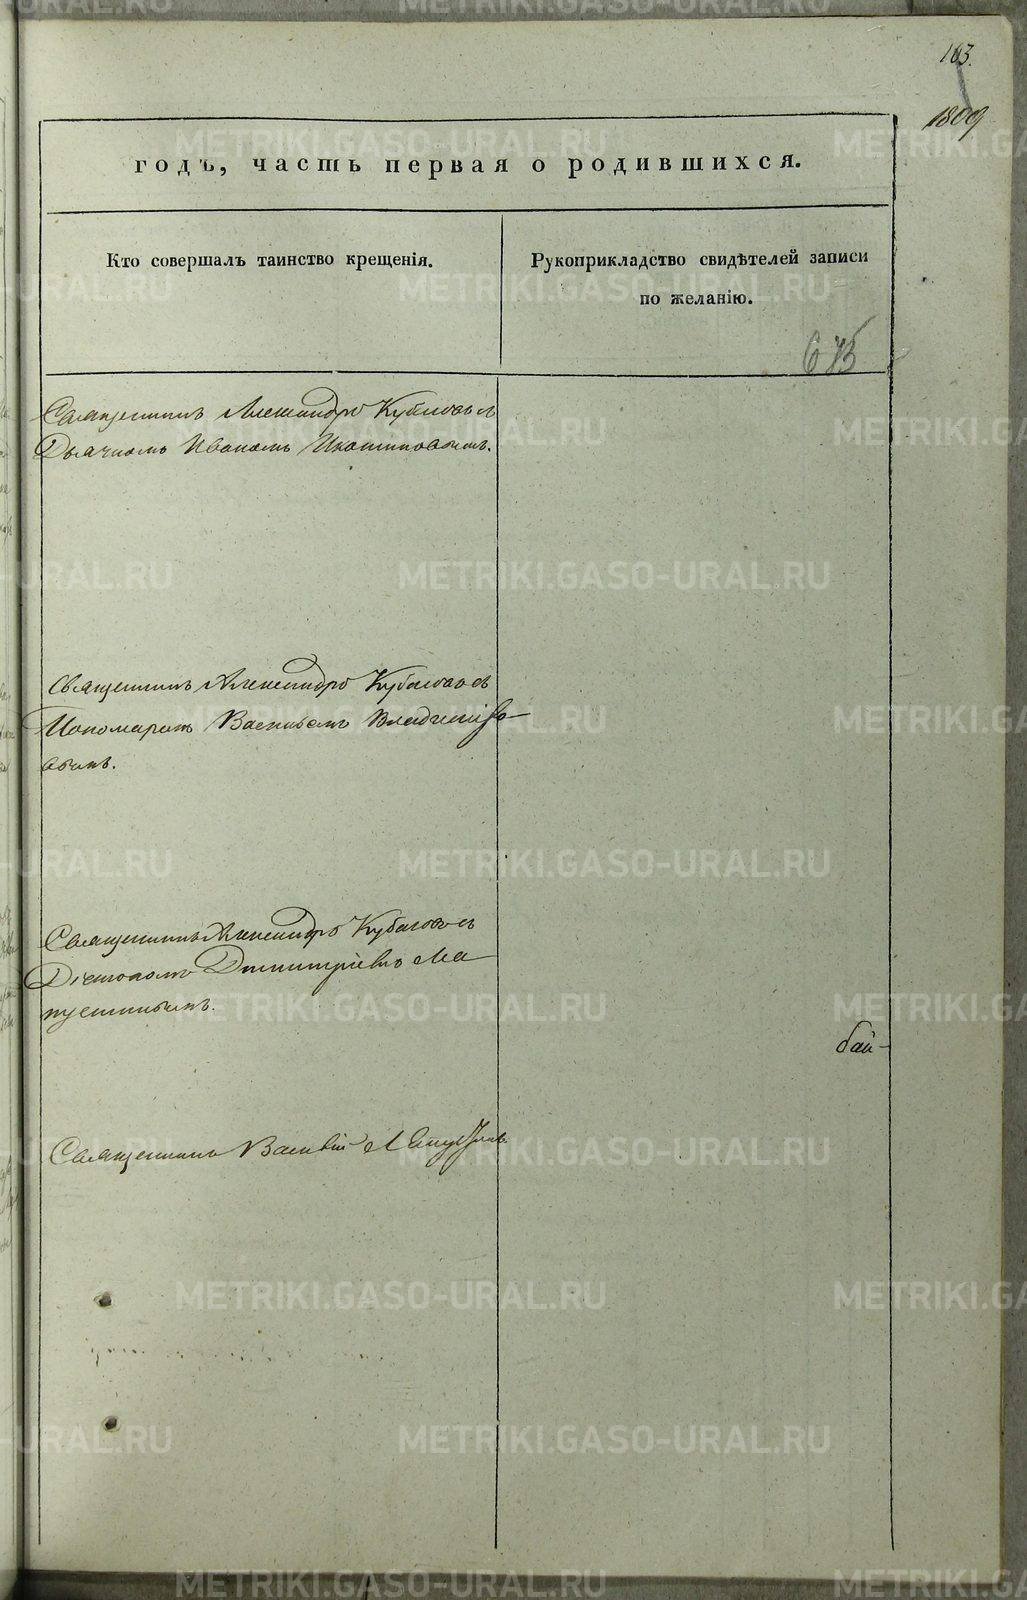 163.
1809
годъ, часть первая о родившихся.
Кто совершалъ таинство крещенія.
Рукоприкладство свидѣтелей записи
по желанію.
675
Священникъ Александръ Кубасовъ съ
Дьячкомъ Иваномъ
Священникъ Александръ Кубасовъ съ
Пономаремъ Васильемъ
вымъ.
Священникъ Александръ Кубасовъ съ
Діакономъ Димитріемъ Ма
пустинымъ.
бай-
Священникъ Василій
METRIKI.GASO-URAL.RU